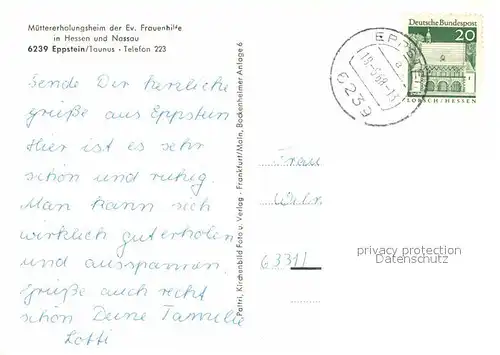 Müttererholungsheim der Ev. Frauenhilfe
in Hessen und Nassau
6239 Eppstein/Taunus - Telefon 223
Sende Dir herzliche
grüße aus Eppstein
Hier ist es sehr
schön und ruhig.
Man kann sich
wirklich gut erholen
und ausspannen.
Grüße auch recht
schön Deine Familie
Lotti
Paltri, Kirchenbild Foto u. Verlag - Frankfurt/Main, Bockenheimer Anlage 6
EPPSTEIN
a
18-5.68-13
6239
Deutsche Bundespost
20
LORSCH/HESSEN
Frau
6331
privacy protection
Datenschutz